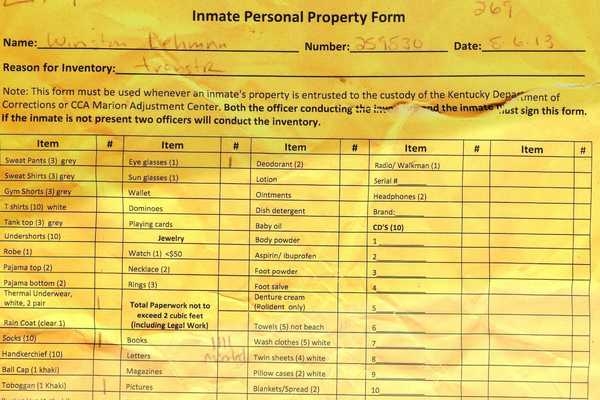 269
Inmate Personal Property Form
Name: Number: 259530 Date: 5.6.13
Reason for Inventory:
Note: This form must be used whenever an inmate's property is entrusted to the custody of the Kentucky Department of
Corrections or CCA Marion Adjustment Center. Both the officer conducting the and the inmate must sign this form.
If the inmate is not present two officers will conduct the inventory.
Item # Item # Item # Item #
Sweat Pants (3) grey Eye glasses (1) 1 Deodorant (2) Radio/ Walkman (1)
Sweat Shirts (3) grey Sun glasses (1) Lotion Serial #
Gym Shorts (3) grey Wallet Ointments Headphones (2)
T shirts (10) white Dominoes Dish detergent Brand:
Tank top (3) grey Playing cards Baby oil CD'S (10)
Undershorts (10) Jewelry Body powder 1
Robe (1) Watch (1) <$50 Aspirin/ ibuprofen 2
Pajama top (2) Necklace (2) Foot powder 3
Pajama bottom (2) Rings (3) Foot salve 4
Thermal Underwear, white, 2 pair 1 Total Paperwork not to exceed 2 cubic feet (Including Legal Work) Denture cream (Rolident only) 5
Rain Coat (clear 1) Towels (5) not beach 6
Socks (10) 1 Books Wash clothes (5) white 7
Handkerchief (10) Letters Twin sheets (4) white 8
Ball Cap (1 khaki) Magazines Pillow cases (2) white 9
Toboggan (1 Khaki) 1 Pictures Blankets/Spread (2) 10